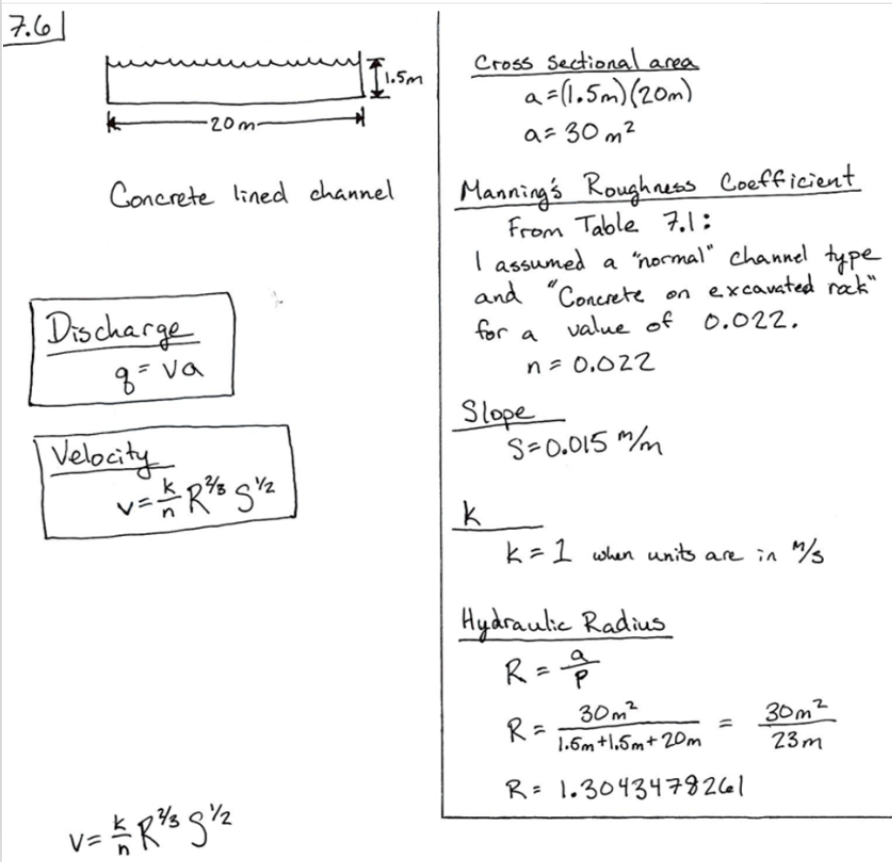 7.6
1.5m
20m
Concrete lined channel
Discharge
q = va
Velocity
v = k/n R^2/3 S^1/2
v = k/n R^2/3 S^1/2
Cross Sectional area
a = (1.5m)(20m)
a = 30 m²
Manning's Roughness Coefficient
From Table 7.1:
I assumed a "normal" channel type
and "Concrete on excavated rock"
for a value of 0.022.
n = 0.022
Slope
S = 0.015 m/m
k
k = 1 when units are in m/s
Hydraulic Radius
R = a/P
R = 30m²/1.5m+1.5m+20m = 30m²/23m
R = 1.3043478261